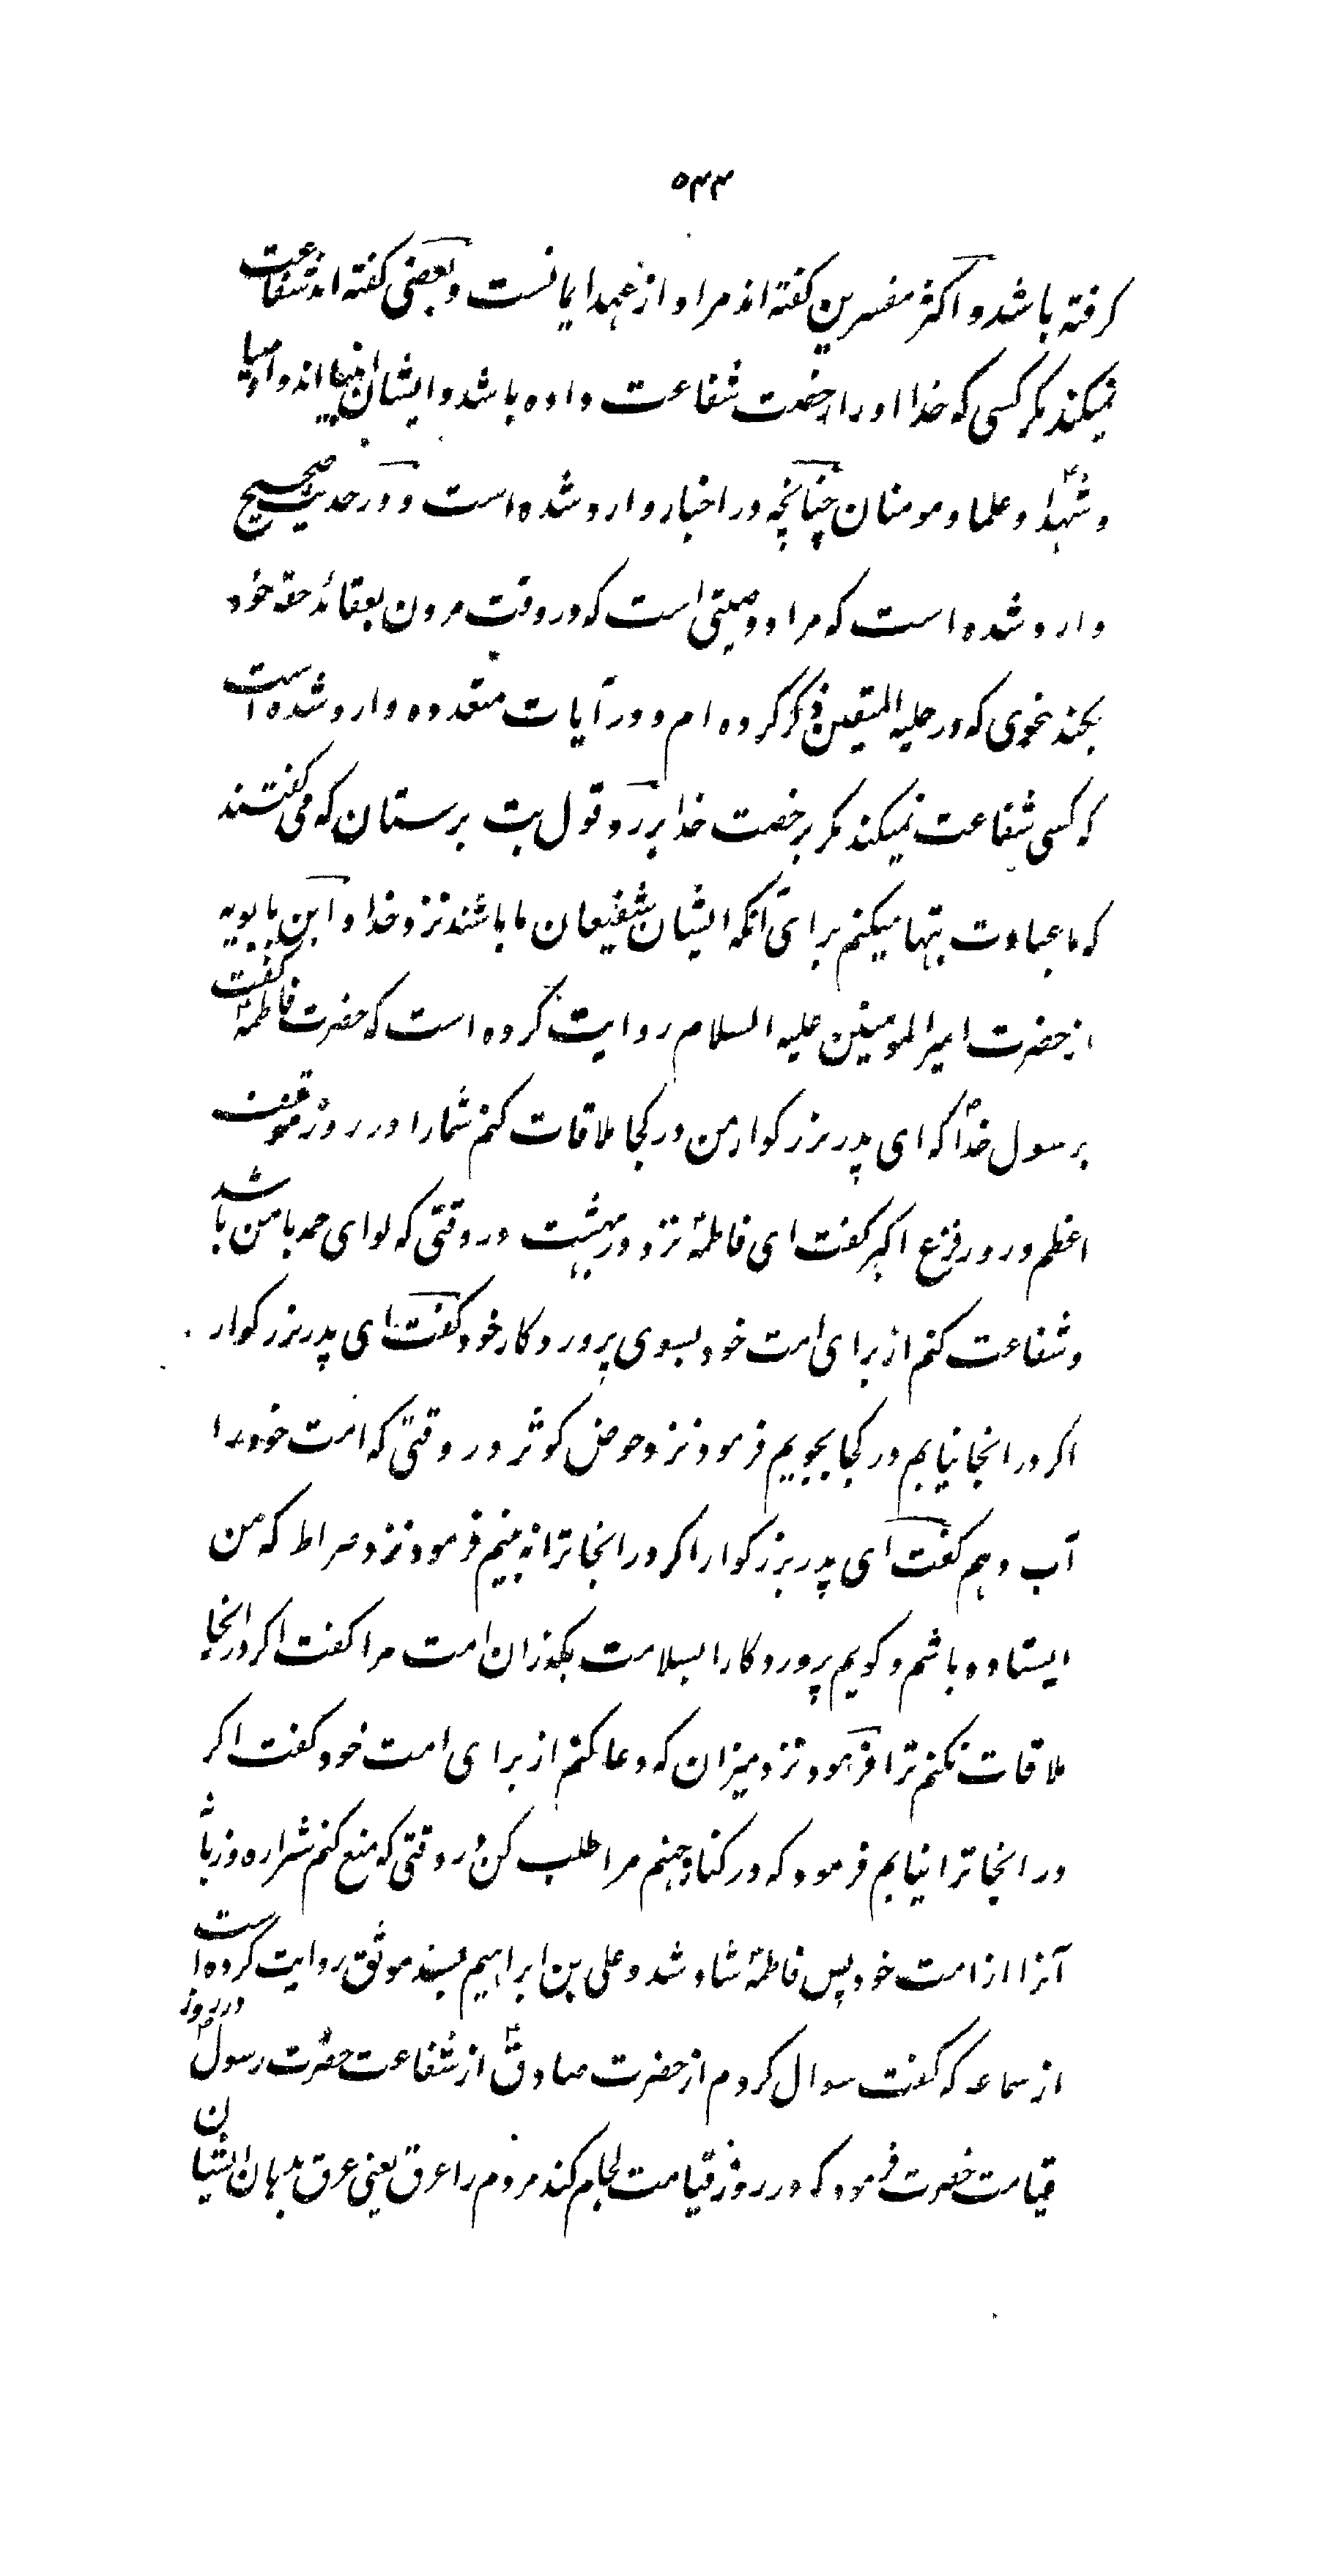 ۵۴۴
کرفته باشد و اکثر مفسرین کفته اند مراد از عهد ایمانست و بعضی کفته اند شفاعت
نمیکند مکر کسی که خدا او را رخصت شفاعت داده باشد و ایشان انبیا اند و اوصیا
و شهدا و علما و مومنان چنانچه در اخبار وارد شده است و در حدیث صحیح
وارد شده است که مراد وصیتی است که در وقت مردن بعقائد حقه خود
بکند بنحوی که در حلیه المتقین ذکر کرده ام و در آیات متعدده وارد شده است
که کسی شفاعت نمیکند مکر برخصت خدا برد قول بت پرستان که می کفتند
که ما عبادت بتها میکنم برای آنکه ایشان شفیعان ما باشند نزد خدا و ابن بابویه
از حضرت امیر المومنین علیه السلام روایت کرده است که حضرت فاطمهؑ کفت
برسول خداؐ که ای پدر بزرکوار من در کجا ملاقات کنم شما را در روز موقف
اعظم و در روز فزع اکبر کفت ای فاطمهؑ نزد در بهشت در وقتی که لوای حمد با من باشد
و شفاعت کنم از برای امت خود بسوی پروردکار خود کفت ای پدر بزرکوار
اکر در انجا نیابم در کجا بجویم فرمود نزد حوض کوثر در وقتی که امت خود را
آب دهم کفت ای پدر بزرکوار اکر در انجا ترا نه بینم فرمود نزد صراط که من
ایستاده باشم و کویم پروردکارا بسلامت بکذران امت مرا کفت اکر در انجا
ملاقات نکنم ترا فرمود نزد میزان که دعا کنم از برای امت خود کفت اکر
در انجا ترا نیابم فرمود که در کنار جهنم مرا طلب کن در وقتی که منع کنم شراره و زبانه
آنرا از امت خود پس فاطمهؑ شاد شد و علی بن ابراهیم بسند موثق روایت کرده است
از سماعه که کفت سوال کردم از حضرت صادقؑ از شفاعت حضرت رسولؐ در روز
قیامت حضرت فرمود که در روز قیامت لجام کند مردم را عرق یعنی عرق بدهان ایشان